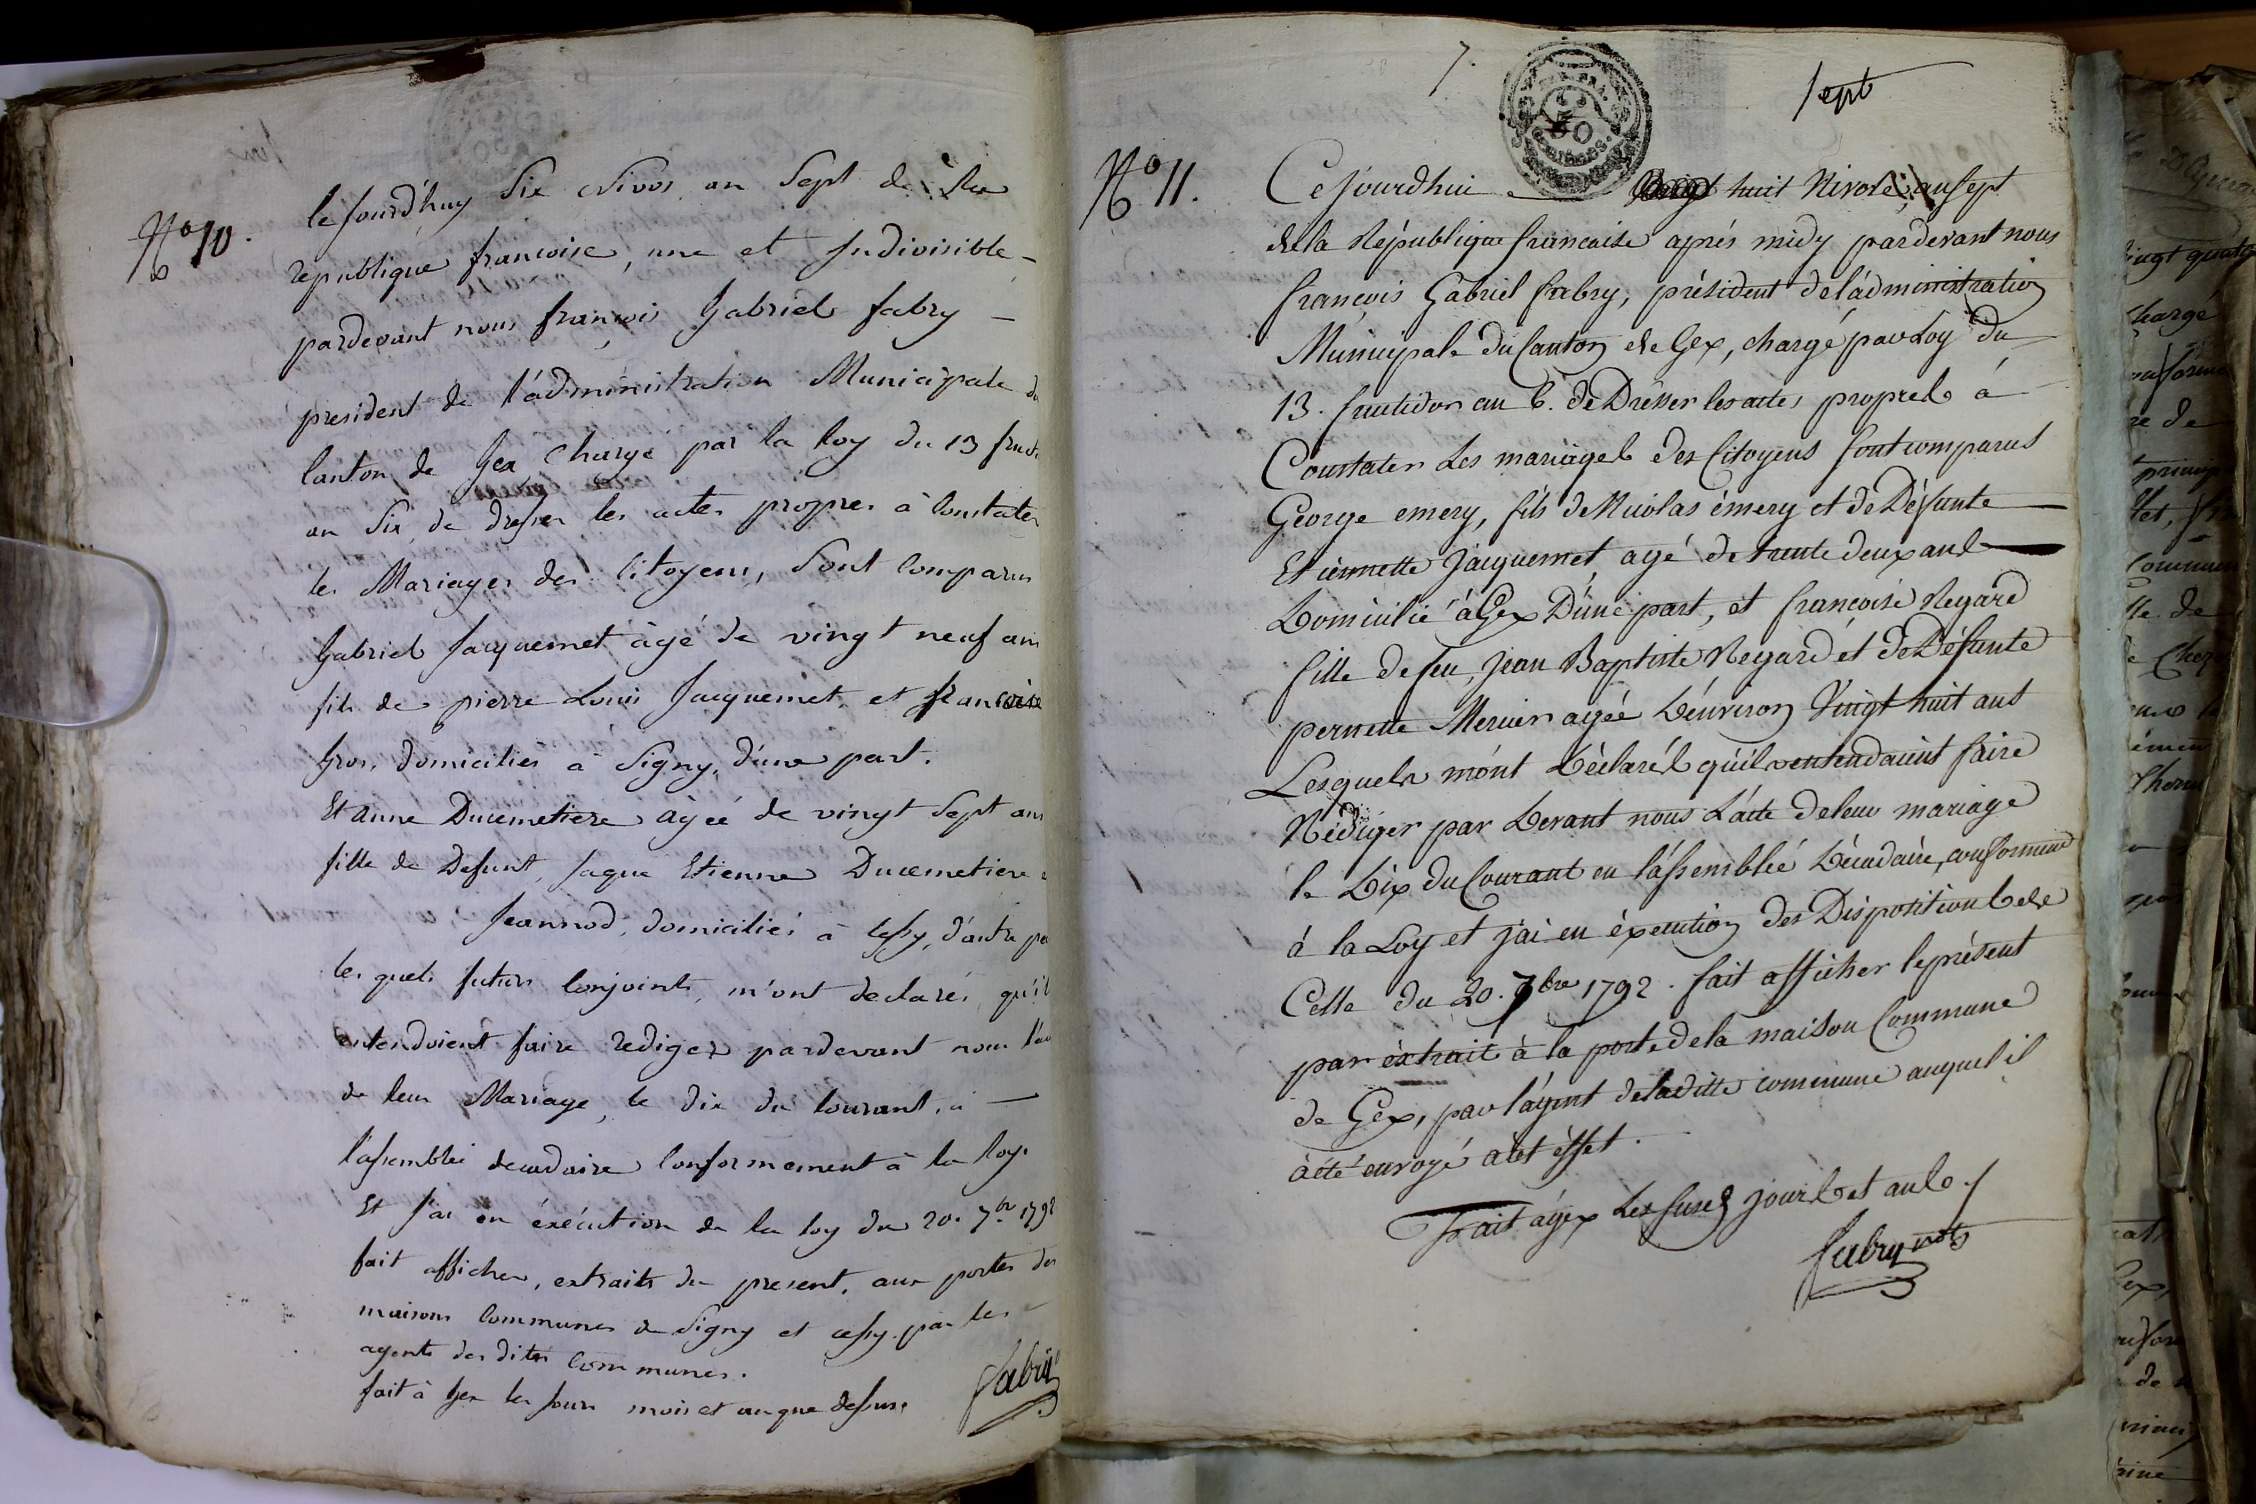 No 10.
Ce Jourd'huy Six Nivos an Sept de la
republique francoise, une et Indivisible -
pardevant nous françois Gabriel fabry -
president de l'administration Municipale du
Canton de Gex Chargé par la loy du 13 fruct
an Six, de dresser les actes propres à Constater
les Mariages des Citoyens, Sont Comparus
Gabriel Jacquemet âgé de vingt neuf ans
fils de pierre Louis Jacquemet, et francoise
Gros, domiciliés à Segny, d'une part.
Et Anne Ducemetiere âgée de vingt Sept ans
fille de Defunt, Jaque Etienne Ducemetiere
Jeannod, domiciliés à Cessy, d'autre pa
les quels futurs Conjoints, m'ont declarés qu'il
entendoient faire rediger pardevant nous l'ac
de leur Mariage, le dix du Courant, à —
l'assemblée decadaire Conformement à la loy.
Et J'ai en éxécution de la loy du 20. 7bre 1792
fait afficher, extraits du present, aux portes des
maisons Communes de Segny et Cessy par les
agents des dites Communes.
fait à Gex les Jour mois et an que dessus.
fabry
7.
50
Sept
No 11.
Cejourdhui huit Nivose, an sept
dela République francaise aprés midy pardevant nous
françois Gabriel fabry, président de l'administration
Municipale du Canton de Gex, chargé par Loy du
13. fructidor an 6. de Dresser les actes propres á
Constater Les mariages des Citoyens sont comparus
George emery, fils de Nicolas émery et de Défunte
Etiennette Jacquemet, agé de trente deux ans
Domicilié à Gex D'une part, et françoise Regard
fille de feu, Jean Baptiste Regard et de Défunte
pernette Mercier agée D'environ Vingt huit ans
Lesquels m'ont Déclarés qu'ils entendaient faire
Rédiger par Devant nous L'acte de leur mariage
le Dix du Courant en l'assemblée Décadaire, conformem
á la Loy et j'ai en éxecution des Dispositions de
Celle du 20. 7bre 1792. fait afficher le présent
par extrait à la porte de la maison Commune
de Gex, par l'agent deladitte commune auquel il
à été envoyé a cet éffet.
Fait à Gex Les susd jours et ans.
fabry